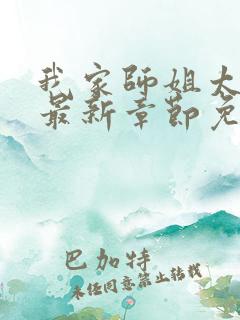 我家师姐大
最新章节免
巴加特
未经同意禁止转载